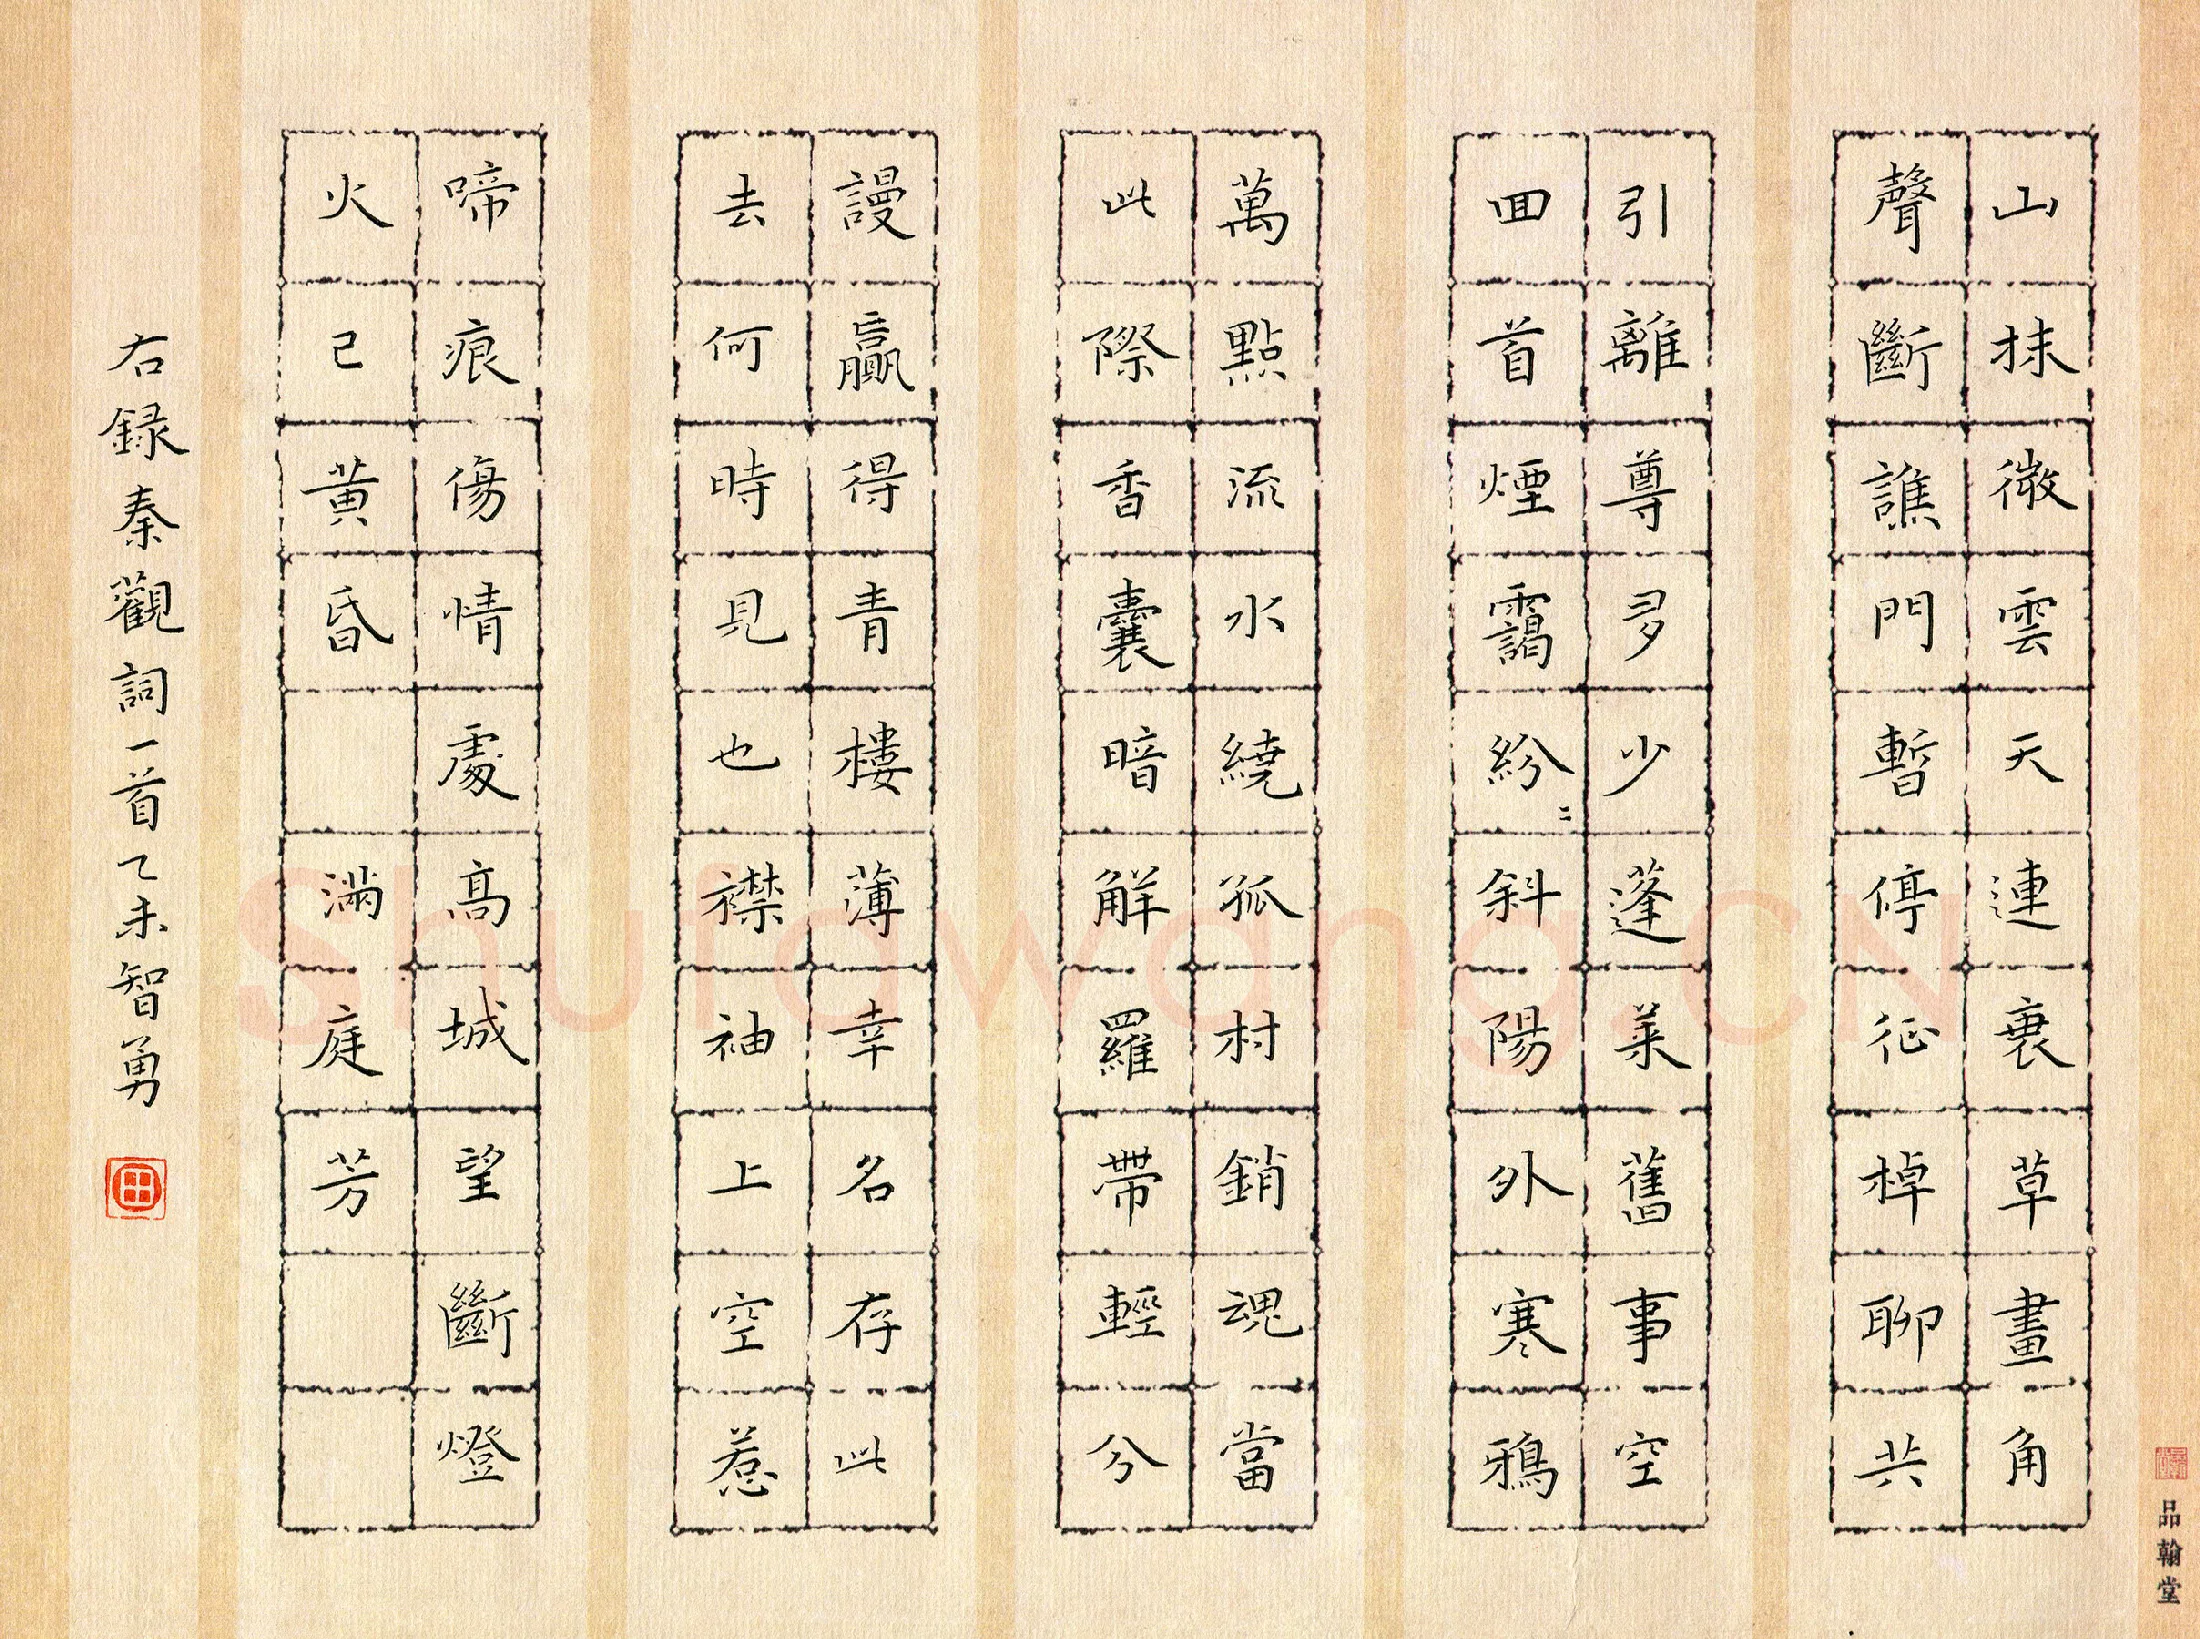 山抹微雲天連衰草畫角
聲斷譙門暫停征棹聊共
引離尊多少蓬萊舊事空
回首煙靄紛〻斜陽外寒鴉
萬點流水繞孤村銷魂當
此際香囊暗解羅帶輕分
謾贏得青樓薄幸名存此
去何時見也襟袖上空惹
啼痕傷情處高城望斷燈
火已黃昏 滿庭芳
右録秦觀詞一首乙未智勇
田
品翰堂
Shufawang.CN